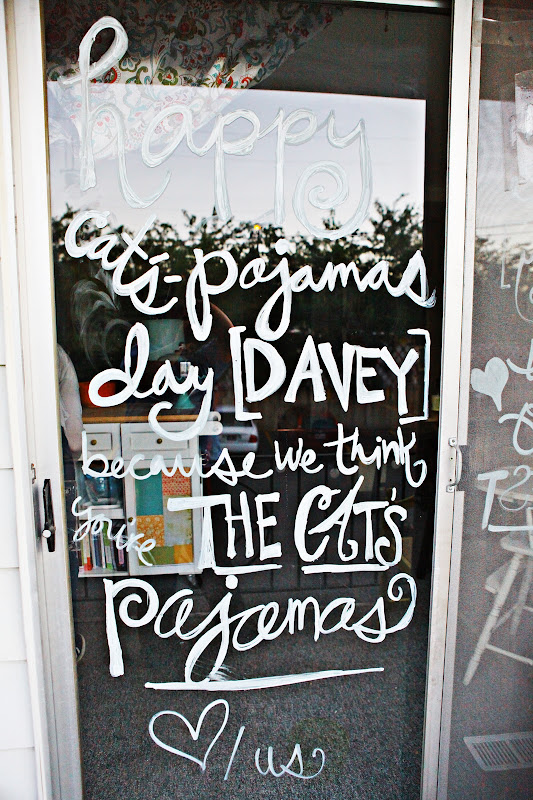 happy
cat's-pajamas
day [DAVEY]
because we think
you're THE CAT'S
pajamas
♡/us